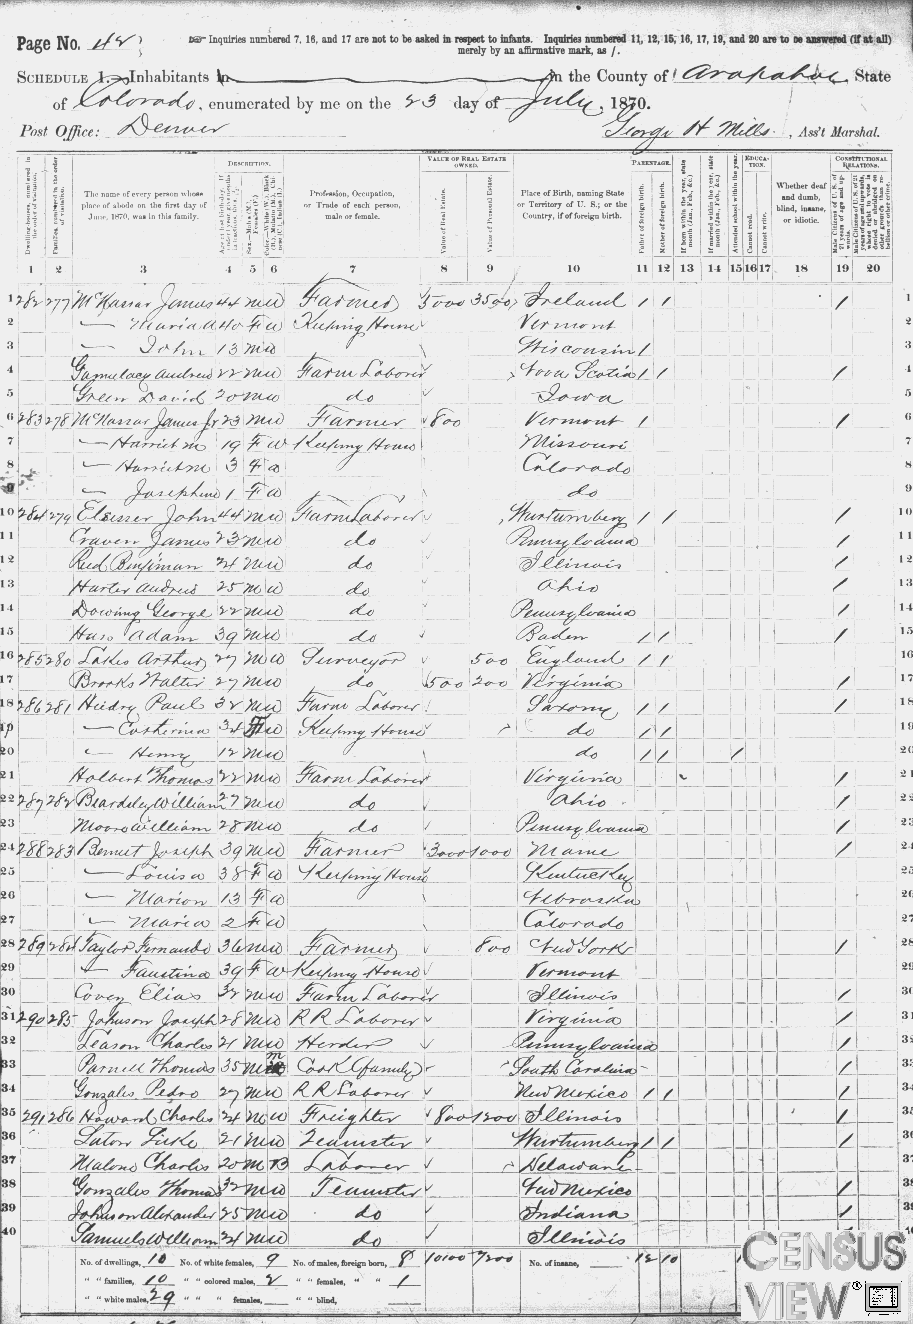 Page No. 48
☞ Inquiries numbered 7, 16, and 17 are not to be asked in respect to infants. Inquiries numbered 11, 12, 15, 16, 17, 19, and 20 are to be answered (if at all) merely by an affirmative mark, as /.
SCHEDULE 1.—Inhabitants in in the County of Arapahoe, State
of Colorado, enumerated by me on the 23 day of July, 1870.
Post Office: Denver George H Mills, Ass't Marshal.
DESCRIPTION. VALUE OF REAL ESTATE OWNED. PARENTAGE. EDUCATION. CONSTITUTIONAL RELATIONS.
The name of every person whose place of abode on the first day of June, 1870, was in this family.
Profession, Occupation, or Trade of each person, male or female.
Value of Real Estate.
Value of Personal Estate.
Place of Birth, naming State or Territory of U. S.; or the Country, if of foreign birth.
Father of foreign birth.
Mother of foreign birth.
Attended school within the year.
Cannot read.
Cannot write.
Whether deaf and dumb, blind, insane, or idiotic.
1 2 3 4 5 6 7 8 9 10 11 12 13 14 15 16 17 18 19 20
1 282 277 McKassar James 44 M W Farmer 5000 3500 Ireland / / / 1
2 — Maria A 40 F W Keeping House Vermont 2
3 — John 13 M W Wisconsin / 3
4 Andrew 22 M W Farm Laborer Nova Scotia / / / 4
5 Green David 20 M W do Iowa 5
6 283 278 McKassar James Jr 23 M W Farmer 800 Vermont / / 6
7 — Harriet M 19 F W Keeping House Missouri 7
8 — Harriet M 3 F W Colorado 8
9 — Josephine 1 F W do 9
10 284 279 Elsisser John 44 M W Farm Laborer Wurtumberg / / / 10
11 Craven James 23 M W do Pennsylvania / 11
12 Reed Benjiman 24 M W do Illinois / 12
13 Harter Andrew 25 M W do Ohio / 13
14 Dowing George 22 M W do Pennsylvania / 14
15 Hass Adam 39 M W do Baden / / / 15
16 285 280 Lakes Arthur 27 M W Surveyor 500 England / / 16
17 Brooks Walter 27 M W do 500 200 Virginia / 17
18 286 281 Hiedry Paul 32 M W Farm Laborer Saxony / / / 18
19 — Catherina 34 F W Keeping House do / / 19
20 — Henry 12 M W do / / / 20
21 Holbert Thomas 22 M W Farm Laborer Virginia / 21
22 287 282 Beardsley William 27 M W do Ohio / 22
23 Moore William 28 M W do Pennsylvania / 23
24 288 283 Bennet Joseph 39 M W Farmer 3000 1000 Maine / 24
25 — Louisa 38 F W Keeping House Kentuckey 25
26 — Marion 13 F W Nebraska 26
27 — Maria 2 F W Colorado 27
28 289 284 Taylor Fernando 36 M W Farmer 800 New York / 28
29 — Faustina 39 F W Keeping House Vermont 29
30 Covey Elias 32 M W Farm Laborer Illinois / 30
31 290 285 Johnson Joseph 28 M W R R Laborer Virginia / 31
32 Leason Charles 21 M W Herder Pennsylvania / 32
33 Parnell Thomas 35 M M Cook (family) South Carolina / 33
34 Gonzales Pedro 27 M W R R Laborer New Mexico / / / 34
35 291 286 Howard Charles 24 M W Freighter 800 1200 Illinois / 35
36 21 M W Teamster Wurtumberg / / / 36
37 Malone Charles 20 M B Laborer Delaware 37
38 Gonzales Thomas 32 M W Teamster New Mexico / 38
39 Johnson Alexander 25 M W do Indiana / 39
40 Samuels William 24 M W do Illinois / 40
No. of dwellings, 10 No. of white females, 9 No. of males, foreign born, 8 10100 7200 No. of insane, 12 10
" " families, 10 " " colored males, 2 " " females, " " 1
" " white males, 29 " " " females, " " blind,
CENSUS
VIEW®